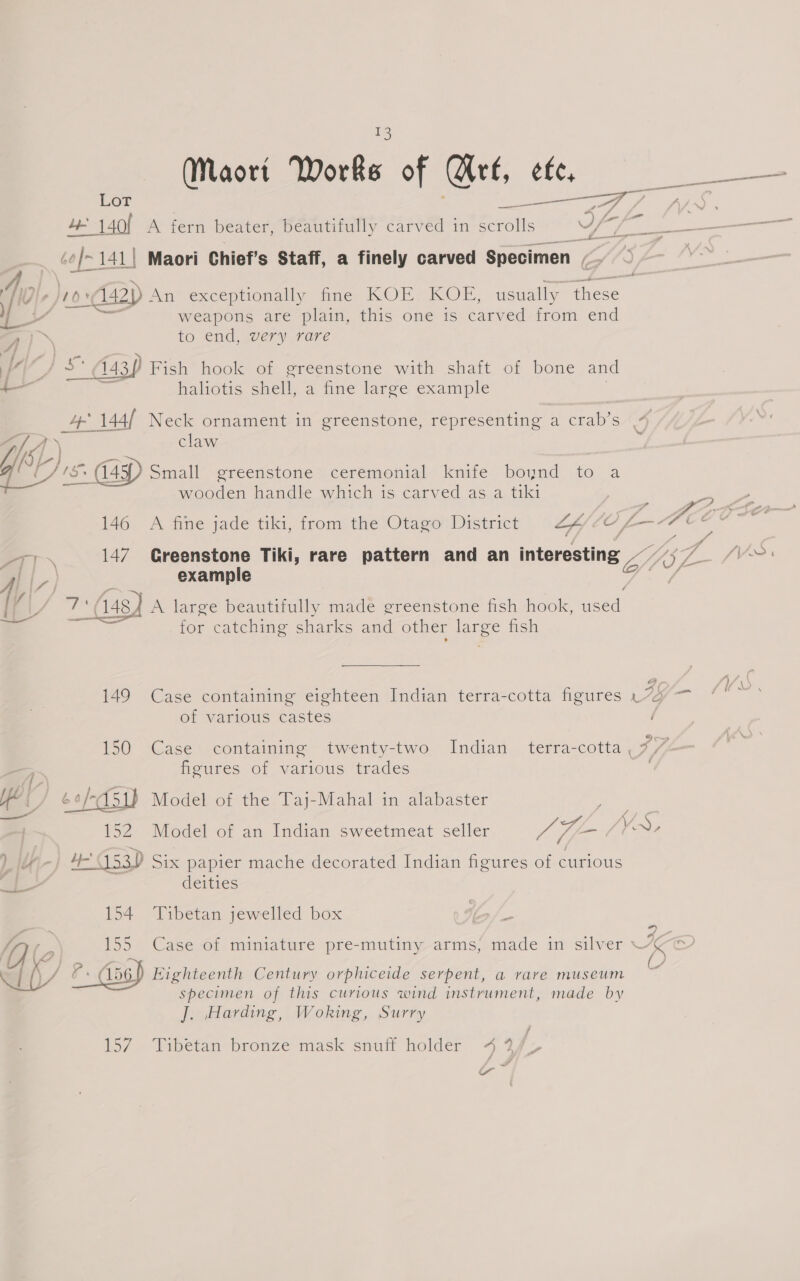 13
Maori Works of Art, etc.
LOT
140 A fern beater, beautifully carved in scrolls
141 Maori Chief's Staff, a finely carved Specimen
142 An exceptionally fine KOE KOE, usually these
weapons are plain, this one is carved from end
to end, very rare
143 Fish hook of greenstone with shaft of bone and
haliotis shell, a fine large example
144 Neck ornament in greenstone, representing a crab's
claw
145 Small greenstone ceremonial knife bound to a
wooden handle which is carved as a tiki
146 A fine jade tiki, from the Otago District
147 Greenstone Tiki, rare pattern and an interesting
example
148 A large beautifully made greenstone fish hook, used
for catching sharks and other large fish
149 Case containing eighteen Indian terra-cotta figures
of various castes
150 Case containing twenty-two Indian terra-cotta
figures of various trades
151 Model of the Taj-Mahal in alabaster
152 Model of an Indian sweetmeat seller
153 Six papier mache decorated Indian figures of curious
deities
154 Tibetan jewelled box
155 Case of miniature pre-mutiny arms, made in silver
156 Eighteenth Century orphiceide serpent, a rare museum
specimen of this curious wind instrument, made by
J. Harding, Woking, Surry
157 Tibetan bronze mask snuff holder